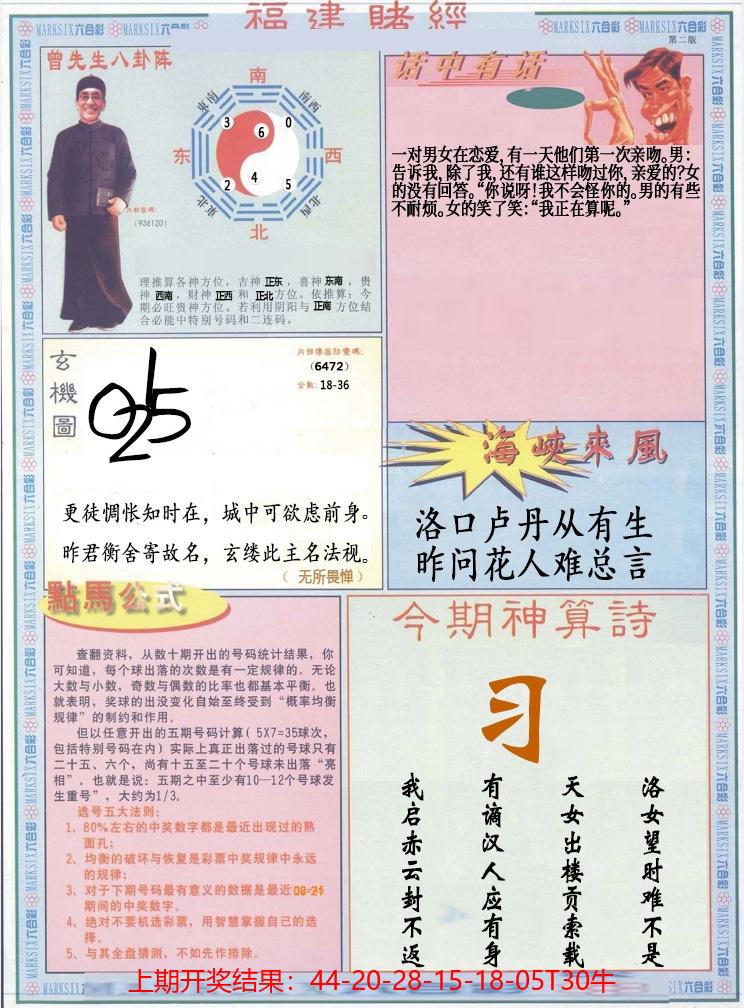 福建賭經
MARKSIX六合彩 MARKSIX六合彩 MARKSIX六合彩 MARKSIX六合彩
第二版
曾先生八卦阵
南
東南 南西
3 6 0
东 西
2 4 5
東北 北西
北
内部密碼:
(936120)
理推算各神方位，吉神 正东，喜神 东南，贵
神 西南，财神 正西 和 正北 方位。依推算：今
期必旺贵神方位。若利用阴阳与 正南 方位结
合必能中特别号码和二连码。
话中有话
一对男女在恋爱,有一天他们第一次亲吻。男:
告诉我,除了我,还有谁这样吻过你,亲爱的?女
的没有回答。“你说呀!我不会怪你的。男的有些
不耐烦。女的笑了笑:“我正在算呢。”
玄機圖
025
(6472)
合數: 18-36
更徒惆怅知时在，城中可欲虑前身。
昨君衡舍寄故名，玄缕此主名法视。
（ 无所畏惮 ）
海峽來風
洛口卢丹从有生
昨问花人难总言
點馬公式
查翻资料，从数十期开出的号码统计结果，你
可知道，每个球出落的次数是有一定规律的。无论
大数与小数，奇数与偶数的比率也都基本平衡。也
就表明，奖球的出没变化自始至终受到“概率均衡
规律”的制约和作用。
但以任意开出的五期号码计算( 5X7=35球次，
包括特别号码在内) 实际上真正出落过的号码只有
二十五、六个，尚有十五至二十个号球未出落“亮
相”。也就是说：五期之中至少有10—12个号球发
生重号”，大约为1/3。
选号五大法则：
1、80%左右的中奖数字都是最近出现过的熟
面孔；
2、均衡的破坏与恢复是彩票中奖规律中永远
的规律；
3、对于下期号码最有意义的数据是最近 08-21
期间的中奖数字。
4、绝对不要机选彩票，用智慧掌握自己的选
择。
5、与其全盘猜测，不如先作排除。
今期神算詩
习
洛女望时难不是
天女出楼贡索载
有谪汉人应有身
我启赤云封不返
上期开奖结果：44-20-28-15-18-05T30牛